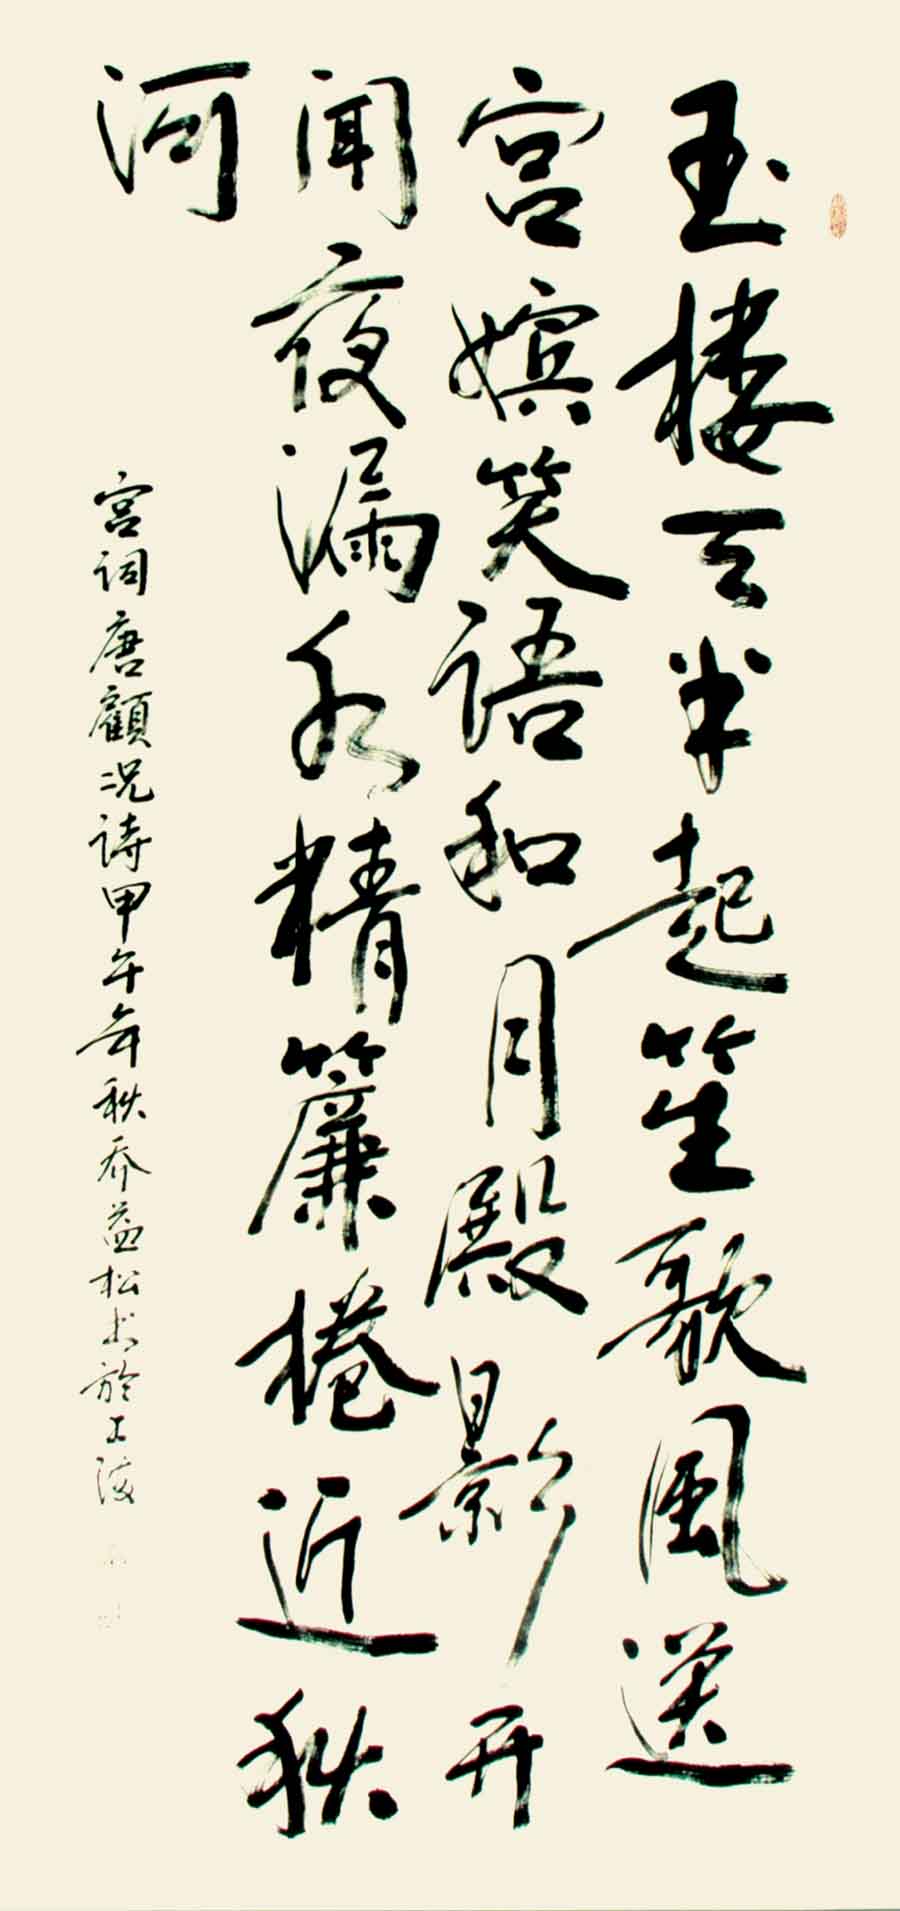 玉楼天半起笙歌风送
宫嫔笑语和月殿影开
闻夜漏水精簾捲近秋
河
宫词唐顧况诗甲午年秋乔益松书於上海